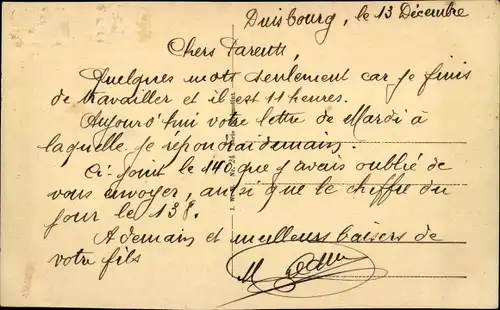 Duisbourg, le 13 Décembre
Chers Parents,
Quelques mots seulement car je finis
de travailler et il est 11 heures.
Aujourd'hui votre lettre de Mardi à
laquelle je répondrai demain.
Ci-joint le 140 que j'avais oublié de
vous envoyer, ainsi que le chiffre du
jour le 138.
A demain et meilleurs baisers de
votre fils
M